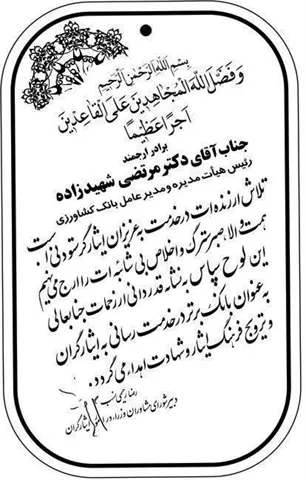 بسم الله الرحمن الرحیم
وَ فَضَّلَ اللهُ المُجاهِدینَ عَلَی القاعِدینَ
اَجراً عَظیماً
برادر ارجمند
جناب آقای دکتر مرتضی شهیدزاده
رئیس هیات مدیره و مدیر عامل بانک کشاورزی
تلاش ارزنده ات در خدمت به عزیزان ایثارگر ستودنی است
همت والا، صبر سترگ و اخلاص بی شائبه ات را ارج می نهیم
این لوح سپاس به نشانه قدردانی از زحمات جنابعالی
به عنوان بانک برتر در خدمت رسانی به ایثارگران
و ترویج فرهنگ ایثار و شهادت اهداء می گردد.
دبیر شورای مشاوران وزراء در امور ایثارگران